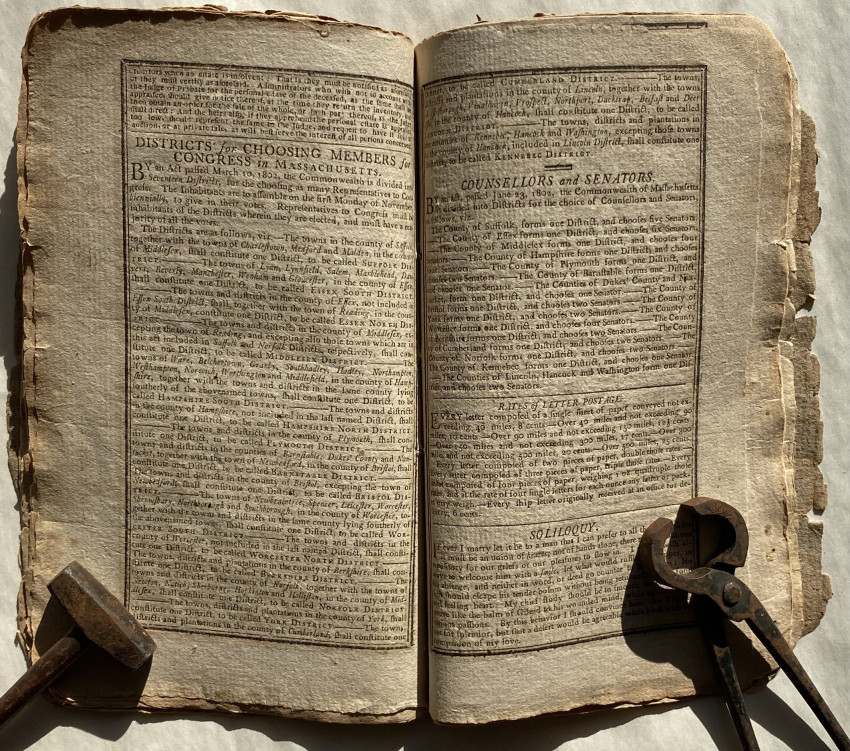 trators when an estate is insolvent. That is they must be notified as
the Judge of Probate for the personal estate of the deceased, as the same
appraised, should give notice thereof, at the time they return the inventory,
then obtain an order for the sale of the whole, or such part thereof, as
too low, should represent the same to the Judge, and request to have it
auction, or at private sale, as will best serve the interest of all persons concerned
DISTRICTS for CHOOSING MEMBERS for
CONGRESS in MASSACHUSETTS.
BY an Act passed March 10, 1802, the Commonwealth is divided into
Seventeen Districts, for the choosing as many Representatives to Con-
gress. The Inhabitants are to assemble on the first Monday of November
biennially, to give in their votes. Representatives to Congress must be
inhabitants of the Districts wherein they are elected, and must have a ma-
jority of all the votes.
The Districts are as follows, viz.—The towns in the county of Suffolk
together with the towns of Charlestown, Medford and Malden, in the county
of Middlesex, shall constitute one District, to be called SUFFOLK DIS-
TRICT.—The towns of Lynn, Lynnfield, Salem, Marblehead, Dan-
vers, Beverly, Manchester, Wenham and Gloucester, in the county of Essex
shall constitute one District, to be called ESSEX SOUTH DISTRICT.
—The towns and districts in the county of Essex, not included in
Essex South District, shall, together with the town of Reading, in the coun-
ty of Middlesex, constitute one District, to be called ESSEX NORTH DIS-
—The towns and districts in the county of Middlesex, ex-
cepting the town of Reading, and excepting also those towns which are in
this act included in Suffolk and Norfolk Districts, respectively, shall con-
stitute one District, to be called MIDDLESEX DISTRICT.—The
towns of Ware, Belchertown, Granby, Southhadley, Hadley, Northampton,
Westhampton, Norwich, Worthington and Middlefield, in the county of Hamp-
shire, together with the towns and districts in the same county lying
southerly of the abovenamed towns, shall constitute one District, to be
called HAMPSHIRE SOUTH DISTRICT.—The towns and districts
in the county of Hampshire, not included in the last named District, shall
constitute one District, to be called HAMPSHIRE NORTH DISTRICT.
—The towns and districts in the county of Plymouth, shall con-
stitute one District, to be called PLYMOUTH DISTRICT.—The
towns and districts in the counties of Barnstable, Dukes' County and Nan-
tucket, together with the towns of Newbedford, in the county of Bristol, shall
constitute one District, to be called BARNSTABLE DISTRICT.
The towns and districts in the county of Bristol, excepting the town of
Newbedford, shall constitute one District, to be called BRISTOL DIS-
TRICT.—The towns of Newbraintree, Spencer, Leicester, Worcester,
Shrewsbury, Northborough and Southborough, in the county of Worcester, to-
gether with the towns and districts in the same county lying southerly of
the abovenamed towns, shall constitute one District, to be called WOR-
CESTER SOUTH DISTRICT.—The towns and districts in the
county of Worcester, not included in the last named District, shall consti-
tute one District, to be called WORCESTER NORTH DISTRICT.
The towns and plantations in the county of Berkshire, shall con-
stitute one District, to be called BERKSHIRE DISTRICT.—The
towns and districts in the county of Norfolk, together with the towns of
Natick, Sherburne, Hopkinton and Holliston in the county of Mid-
dlesex, shall constitute one District, to be called NORFOLK DISTRICT.
The towns, districts and plantations in the county of York, shall
constitute one District, to be called YORK DISTRICT.—The towns,
districts and plantations in the county of Cumberland, shall constitute one
District, to be called CUMBERLAND DISTRICT.—The towns,
and plantations in the county of Lincoln, together with the towns
Prospect, Northport, Ducktrap, Belfast and Deer
in the county of Hancock, shall constitute one District, to be called
DISTRICT.—The towns, districts and plantations in
of Kennebec, Hancock and Washington, excepting those towns
of Hancock, included in Lincoln District, shall constitute one
to be called KENNEBEC DISTRICT.
COUNSELLORS and SENATORS.
BY an act, passed June 23, 1802, the Commonwealth of Massachusetts
is divided into Districts for the choice of Counsellors and Senators,
viz.
The County of Suffolk, forms one District, and chooses five Senators.
—The County of Essex forms one District, and chooses six Senators.
—The County of Middlesex forms one District, and chooses four
Senators.—The County of Hampshire forms one District, and chooses
Senators.—The County of Plymouth forms one District, and
chooses two Senators.—The County of Barnstable forms one District,
and chooses one Senator.—The Counties of Dukes' County and Nan-
tucket, form one District, and chooses one Senator.—The County of
Bristol forms one District, and chooses two Senators.—The County of
York forms one District, and chooses two Senators.—The County of
Worcester forms one District, and chooses four Senators.—The County
of Berkshire forms one District, and chooses two Senators.—The Coun-
ty of Cumberland forms one District, and chooses two Senators.—The
County of Norfolk forms one District, and chooses two Senators.
The County of Kennebec forms one District, and chooses one Senator
—The Counties of Lincoln, Hancock and Washington form one Dis-
trict, and chooses two Senators.
RATES of LETTER POSTAGE.
EVERY letter composed of a single sheet of paper conveyed not ex-
ceeding 40 miles, 8 cents—Over 40 miles and not exceeding 90
miles, 10 cents—Over 90 miles and not exceeding 150 miles, 12½ cents
—Over 150 miles and not exceeding 300 miles, 17 cents—Over 300
miles, and not exceeding 500 miles, 20 cents—Over 500 miles, 25 cents.
Every letter composed of two pieces of paper, double those rates—
Every letter composed of three pieces of paper, triple those rates—Every
letter composed of four pieces of paper, weighing 1 oz. quadruple those
rates, and at the rate of four single letters for each ounce any letter or pack-
et may weigh.—Every ship letter originally received at an office for de-
livery, 6 cents.
SOLILOQUY.
IF ever I marry let it be to a that I can prefer to all the
must be an union of hearts, not of hands alone; there
pository for our griefs or our pleasures to flow in.
ways to welcome him with a smile, let what would ruffle
abitage; and neither in word, or deed go
should escape his tender bosom without being
feeling heart. My chief study should be to
like the balm of Gilead to his wounded mind,
passions. By this behavior I should convince him,
splendor, but that a desert would be agreeable
companion of my love.